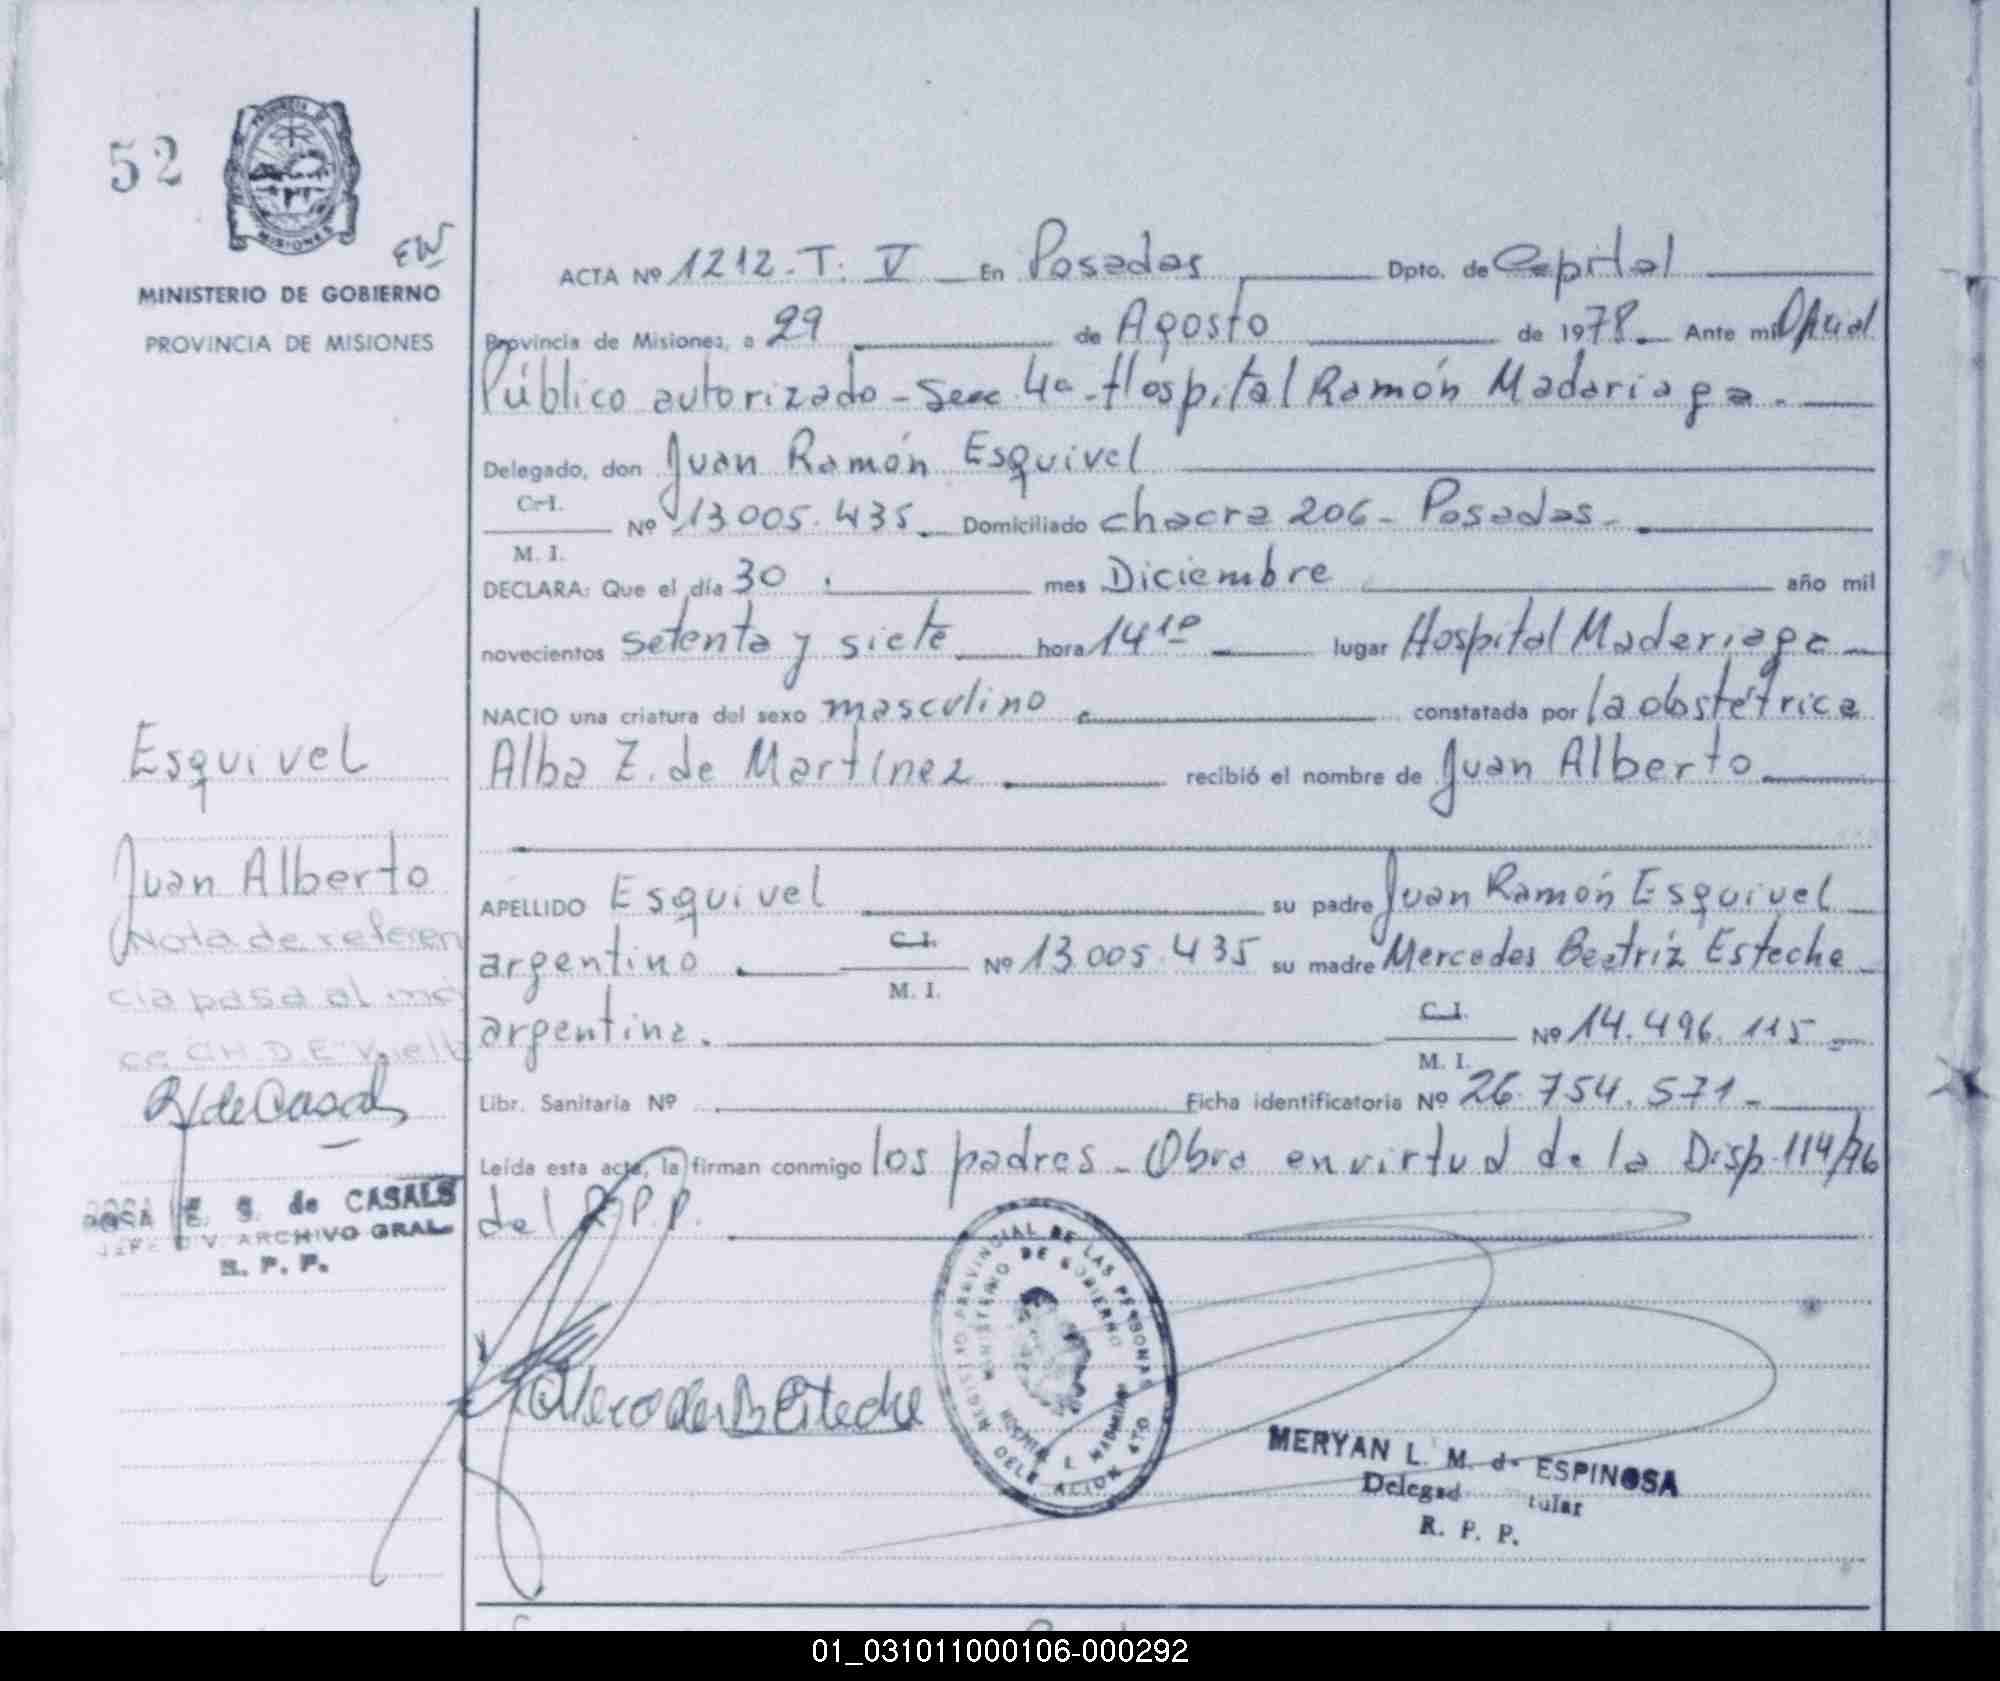 52
PROVINCIA DE
MISIONES
EW
MINISTERIO DE GOBIERNO
PROVINCIA DE MISIONES
ACTA Nº 1212. T. V En Posadas Dpto. de Capital
Provincia de Misiones, a 29 de Agosto de 1978 Ante mi Oficial
Público autorizado - Secc 4ª - Hospital Ramón Madariaga.
Delegado, don Juan Ramón Esquivel
C. I.
Nº 13.005.435 Domiciliado chacra 206 - Posadas.
M. I.
DECLARA: Que el día 30 mes Diciembre año mil
novecientos setenta y siete hora 14 10 lugar Hospital Madariaga
NACIO una criatura del sexo masculino constatada por la obstétrica
Alba Z. de Martínez recibió el nombre de Juan Alberto
APELLIDO Esquivel su padre Juan Ramón Esquivel
argentino C. I. Nº 13.005.435 su madre Mercedes Beatriz Esteche
M. I.
argentina. C. I. Nº 14.496.115
M. I.
Libr. Sanitaria Nº Ficha identificatoria Nº 26.754.571
Leída esta acta, la firman conmigo los padres - Obra en virtud de la Disp. 114/76
del R.P.P.
Esquivel
Juan Alberto
Nota de referen
cia pasa al indi
ce CH D.E. Vuelt
R de Casals
ROSA E. S. de CASALS
JEFE DIV. ARCHIVO GRAL
R. P. P.
Mercedes B Esteche
REGISTRO PROVINCIAL DE LAS PERSONAS
MINISTERIO DE GOBIERNO
DELEGACION 4TO
MERYAN L. M. de ESPINOSA
Delegad tular
R. P. P.
01_031011000106-000292